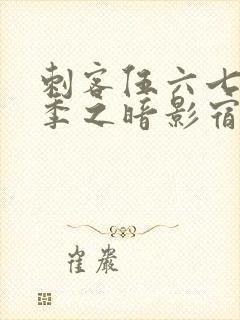 刺客伍六七
季之暗影宿
崔岩